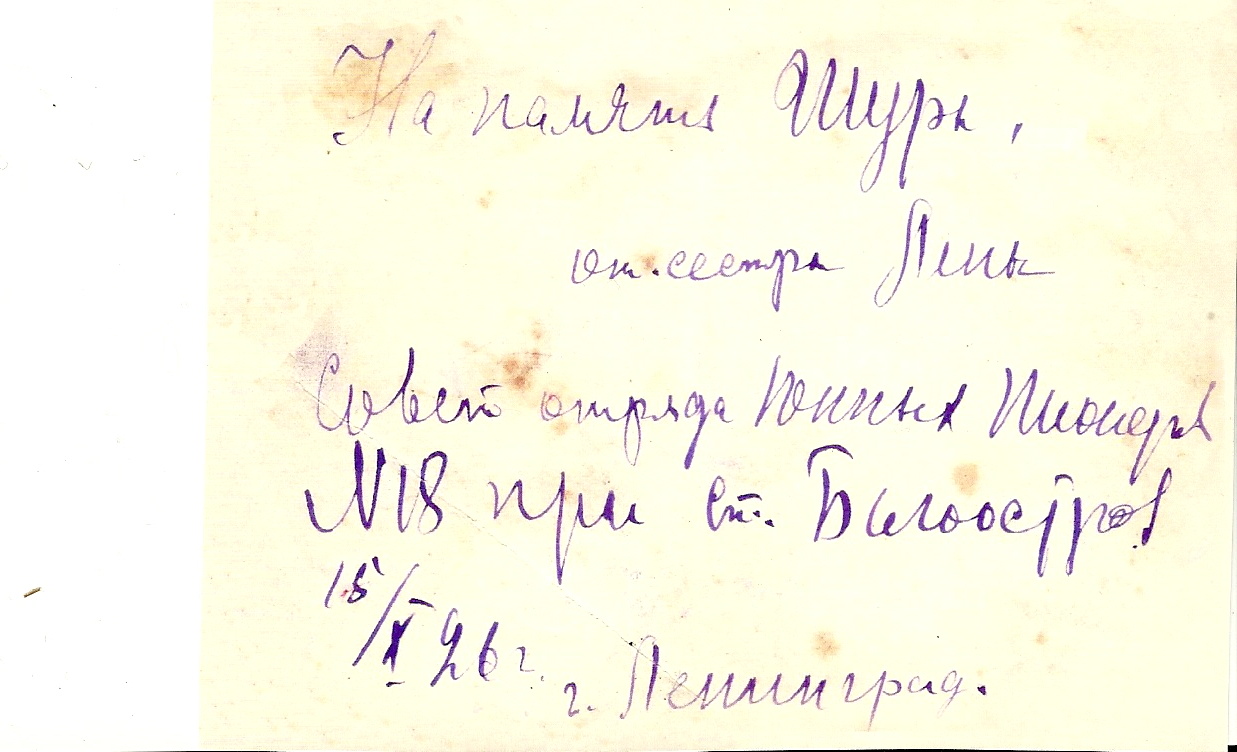 На память Шуры,
от сестры Лены
Совет отряда Юнных Пионеров
№18 при ст. Белоостров
15/X 26 г.
г. Ленинград.